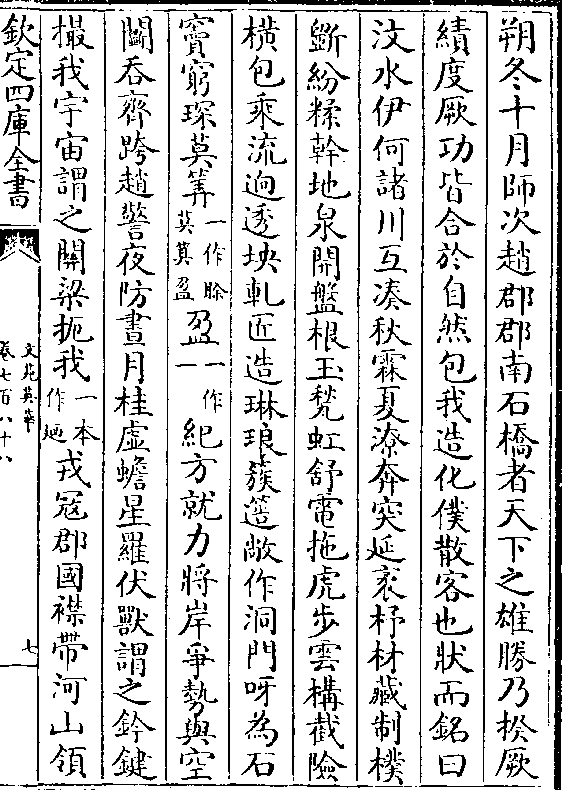 朔冬十月師次趙郡郡南石橋者天下之雄勝乃揆厥
績度厥功皆合於自然包我造化僕散客也狀而銘曰
汶水伊何諸川互湊秋霖夏潦奔突延袤杼材藏制樸
斵紛糅幹地泉開盤根玉甃虹舒電拖虎步雲構截險
橫包乘流逈透坱軋匠造琳琅簇簉敞作洞門呀為石
竇窮琛莫筭一作賒莫算盈盈一作一紀方就力將岸爭勢與空
鬬吞齊跨趙警夜防晝月桂虛蟾星羅伏獸謂之鈐鍵
撮我宇宙謂之關梁扼我一本作迊戎冦郡國襟帶河山領
欽定四庫全書
文苑英華
卷七百八十八
七